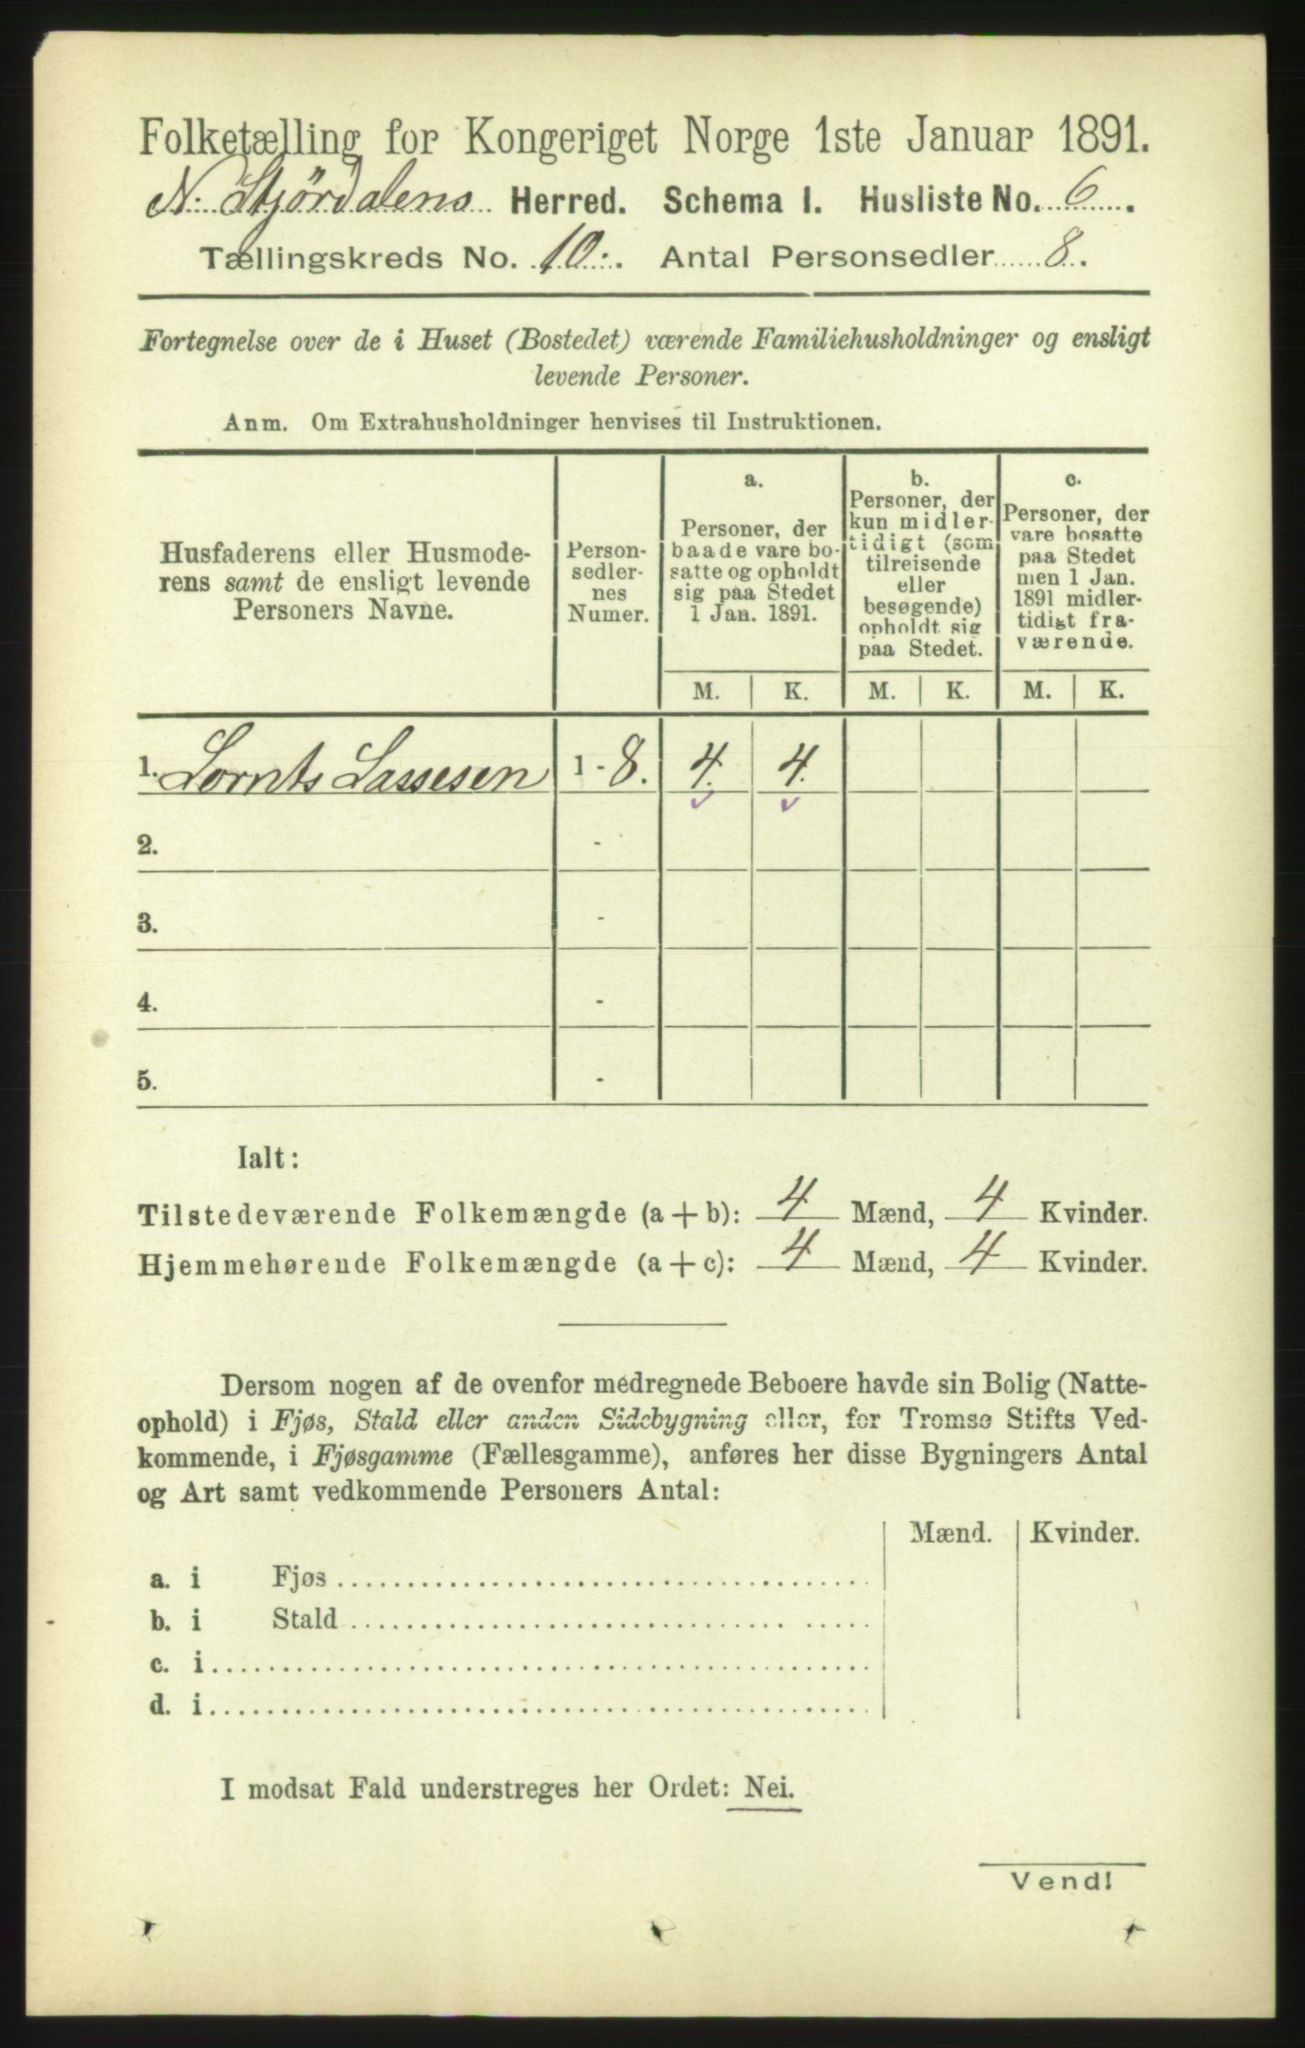 Folketælling for Kongeriget Norge 1ste Januar 1891.
N. Stjørdalens Herred. Schema I. Husliste No. 6.
Tællingskreds No. 10. Antal Personsedler 8.
Fortegnelse over de i Huset (Bostedet) værende Familiehusholdninger og ensligt
levende Personer.
Anm. Om Extrahusholdninger henvises til Instruktionen.
Husfaderens eller Husmode-
rens samt de ensligt levende
Personers Navne.
Person-
sedler-
nes
Numer.
a.
Personer, der
baade vare bo-
satte og opholdt
sig paa Stedet
1 Jan. 1891.
b.
Personer, der
kun midler-
tidigt (som
tilreisende
eller
besøgende)
opholdt sig
paa Stedet.
c.
Personer, der
vare bosatte
paa Stedet
men 1 Jan.
1891 midler-
tidigt fra-
værende.
M. K. M. K. M. K.
1. Lornts Lassesen 1 - 8. 4. 4.
2. -
3. -
4. -
5. -
Ialt:
Tilstedeværende Folkemængde (a + b): 4 Mænd, 4 Kvinder.
Hjemmehørende Folkemængde (a + c): 4 Mænd, 4 Kvinder.
Dersom nogen af de ovenfor medregnede Beboere havde sin Bolig (Natte-
ophold) i Fjøs, Stald eller anden Sidebygning eller, for Tromsø Stifts Ved-
kommende, i Fjøsgamme (Fællesgamme), anføres her disse Bygningers Antal
og Art samt vedkommende Personers Antal:
Mænd. Kvinder.
a. i Fjøs
b. i Stald
c. i
d. i
I modsat Fald understreges her Ordet: Nei.
Vend!